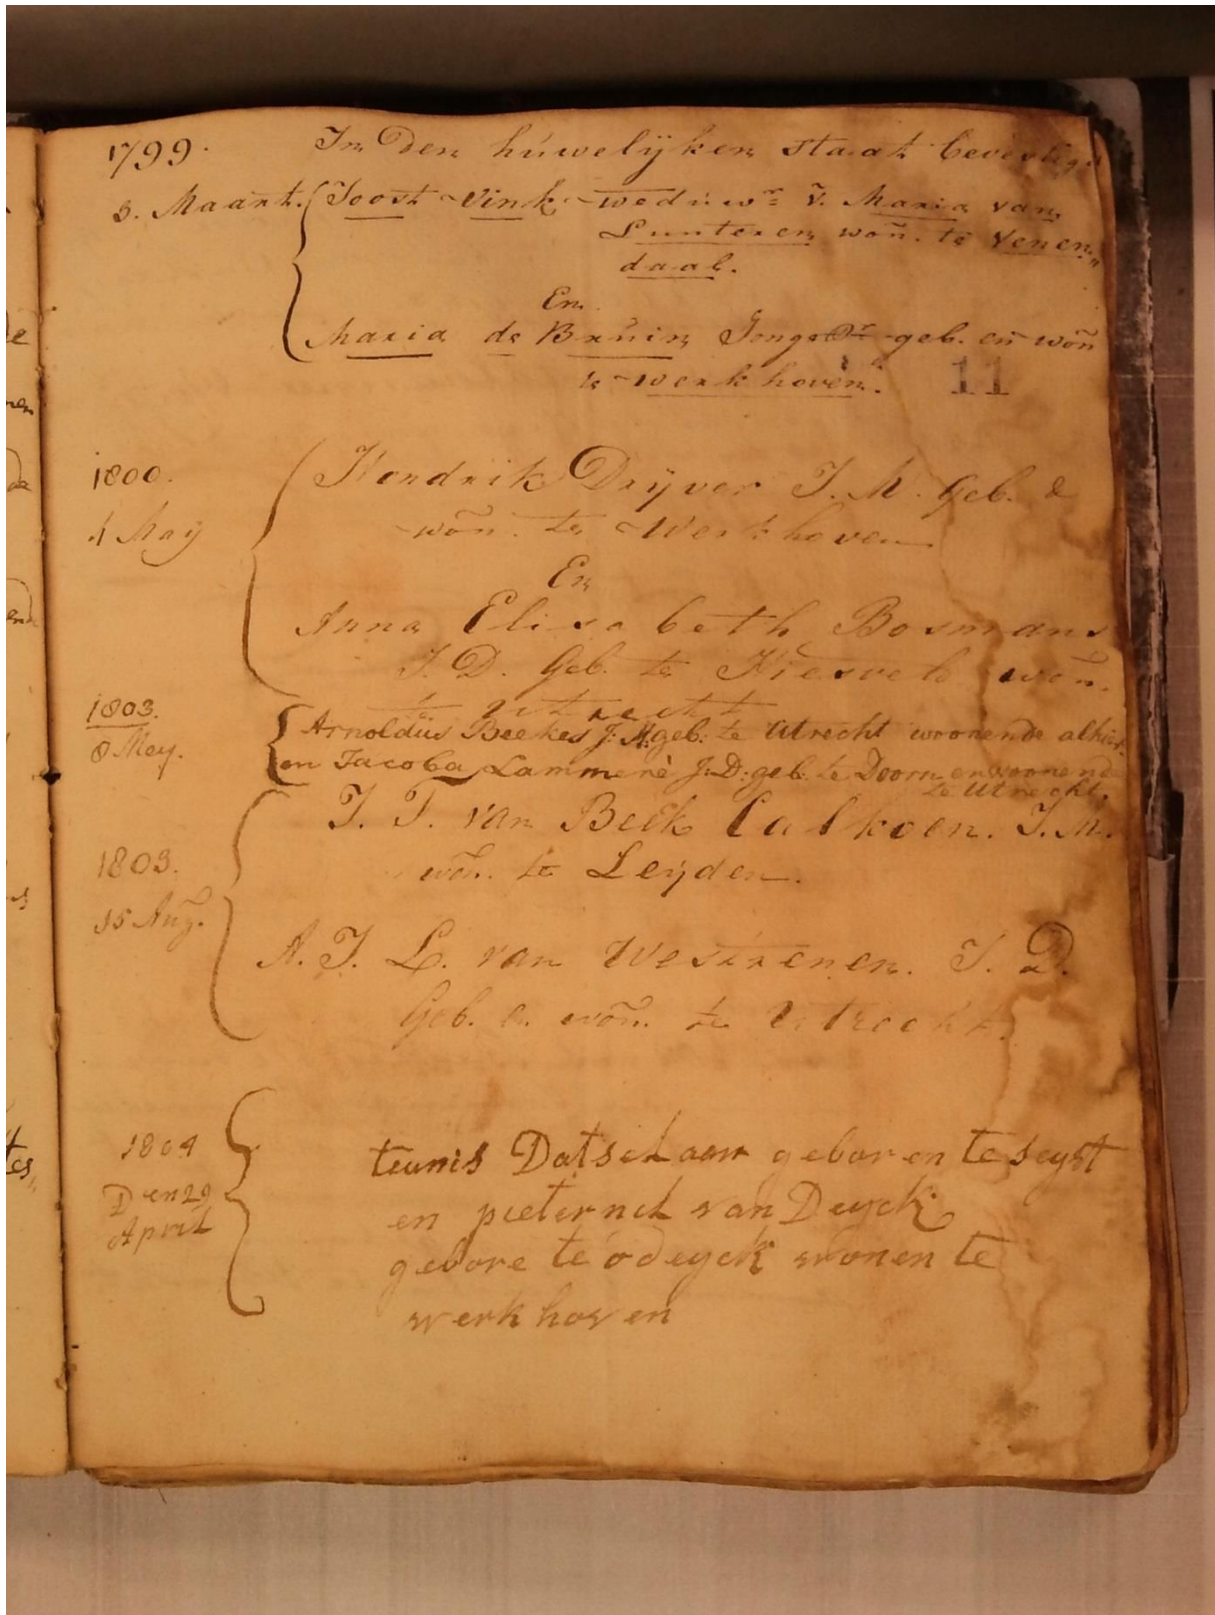 1799. In Den húwelyken staat bevestigd
3. Maart. Joost Vink weduwr. v. Maria van
Lunteren woñ. te Venen„
daal.
En
Maria de Brúin Jonge Dr. geb. eñ woñ
te Werkhoven. 11
1800. Hendrik Dryver J. M. Geb. &
4 May woñ. te Werkhoven
En
Anna Elisabeth Bosmans
J. D. Geb. te woñ.
te Utrecht
1803. Arnoldús Beekes J: M: geb: te Utrecht woonende alhier.
8 Mey. en Jacoba Lammerè J: D: geb: te Doorn en woonende
te Utrecht.
J. F. van Beek Calkoen. J. M.
1803. woñ. te Leyden.
15 Aug. A. J. L. van Westrenen. J. D.
Geb. e. woñ. te Utrecht.
1804 teunis Datselaar geboren te seyst
Den 29 en pieternel van Deyck
April gebore te odeyck wonen te
werkhoven